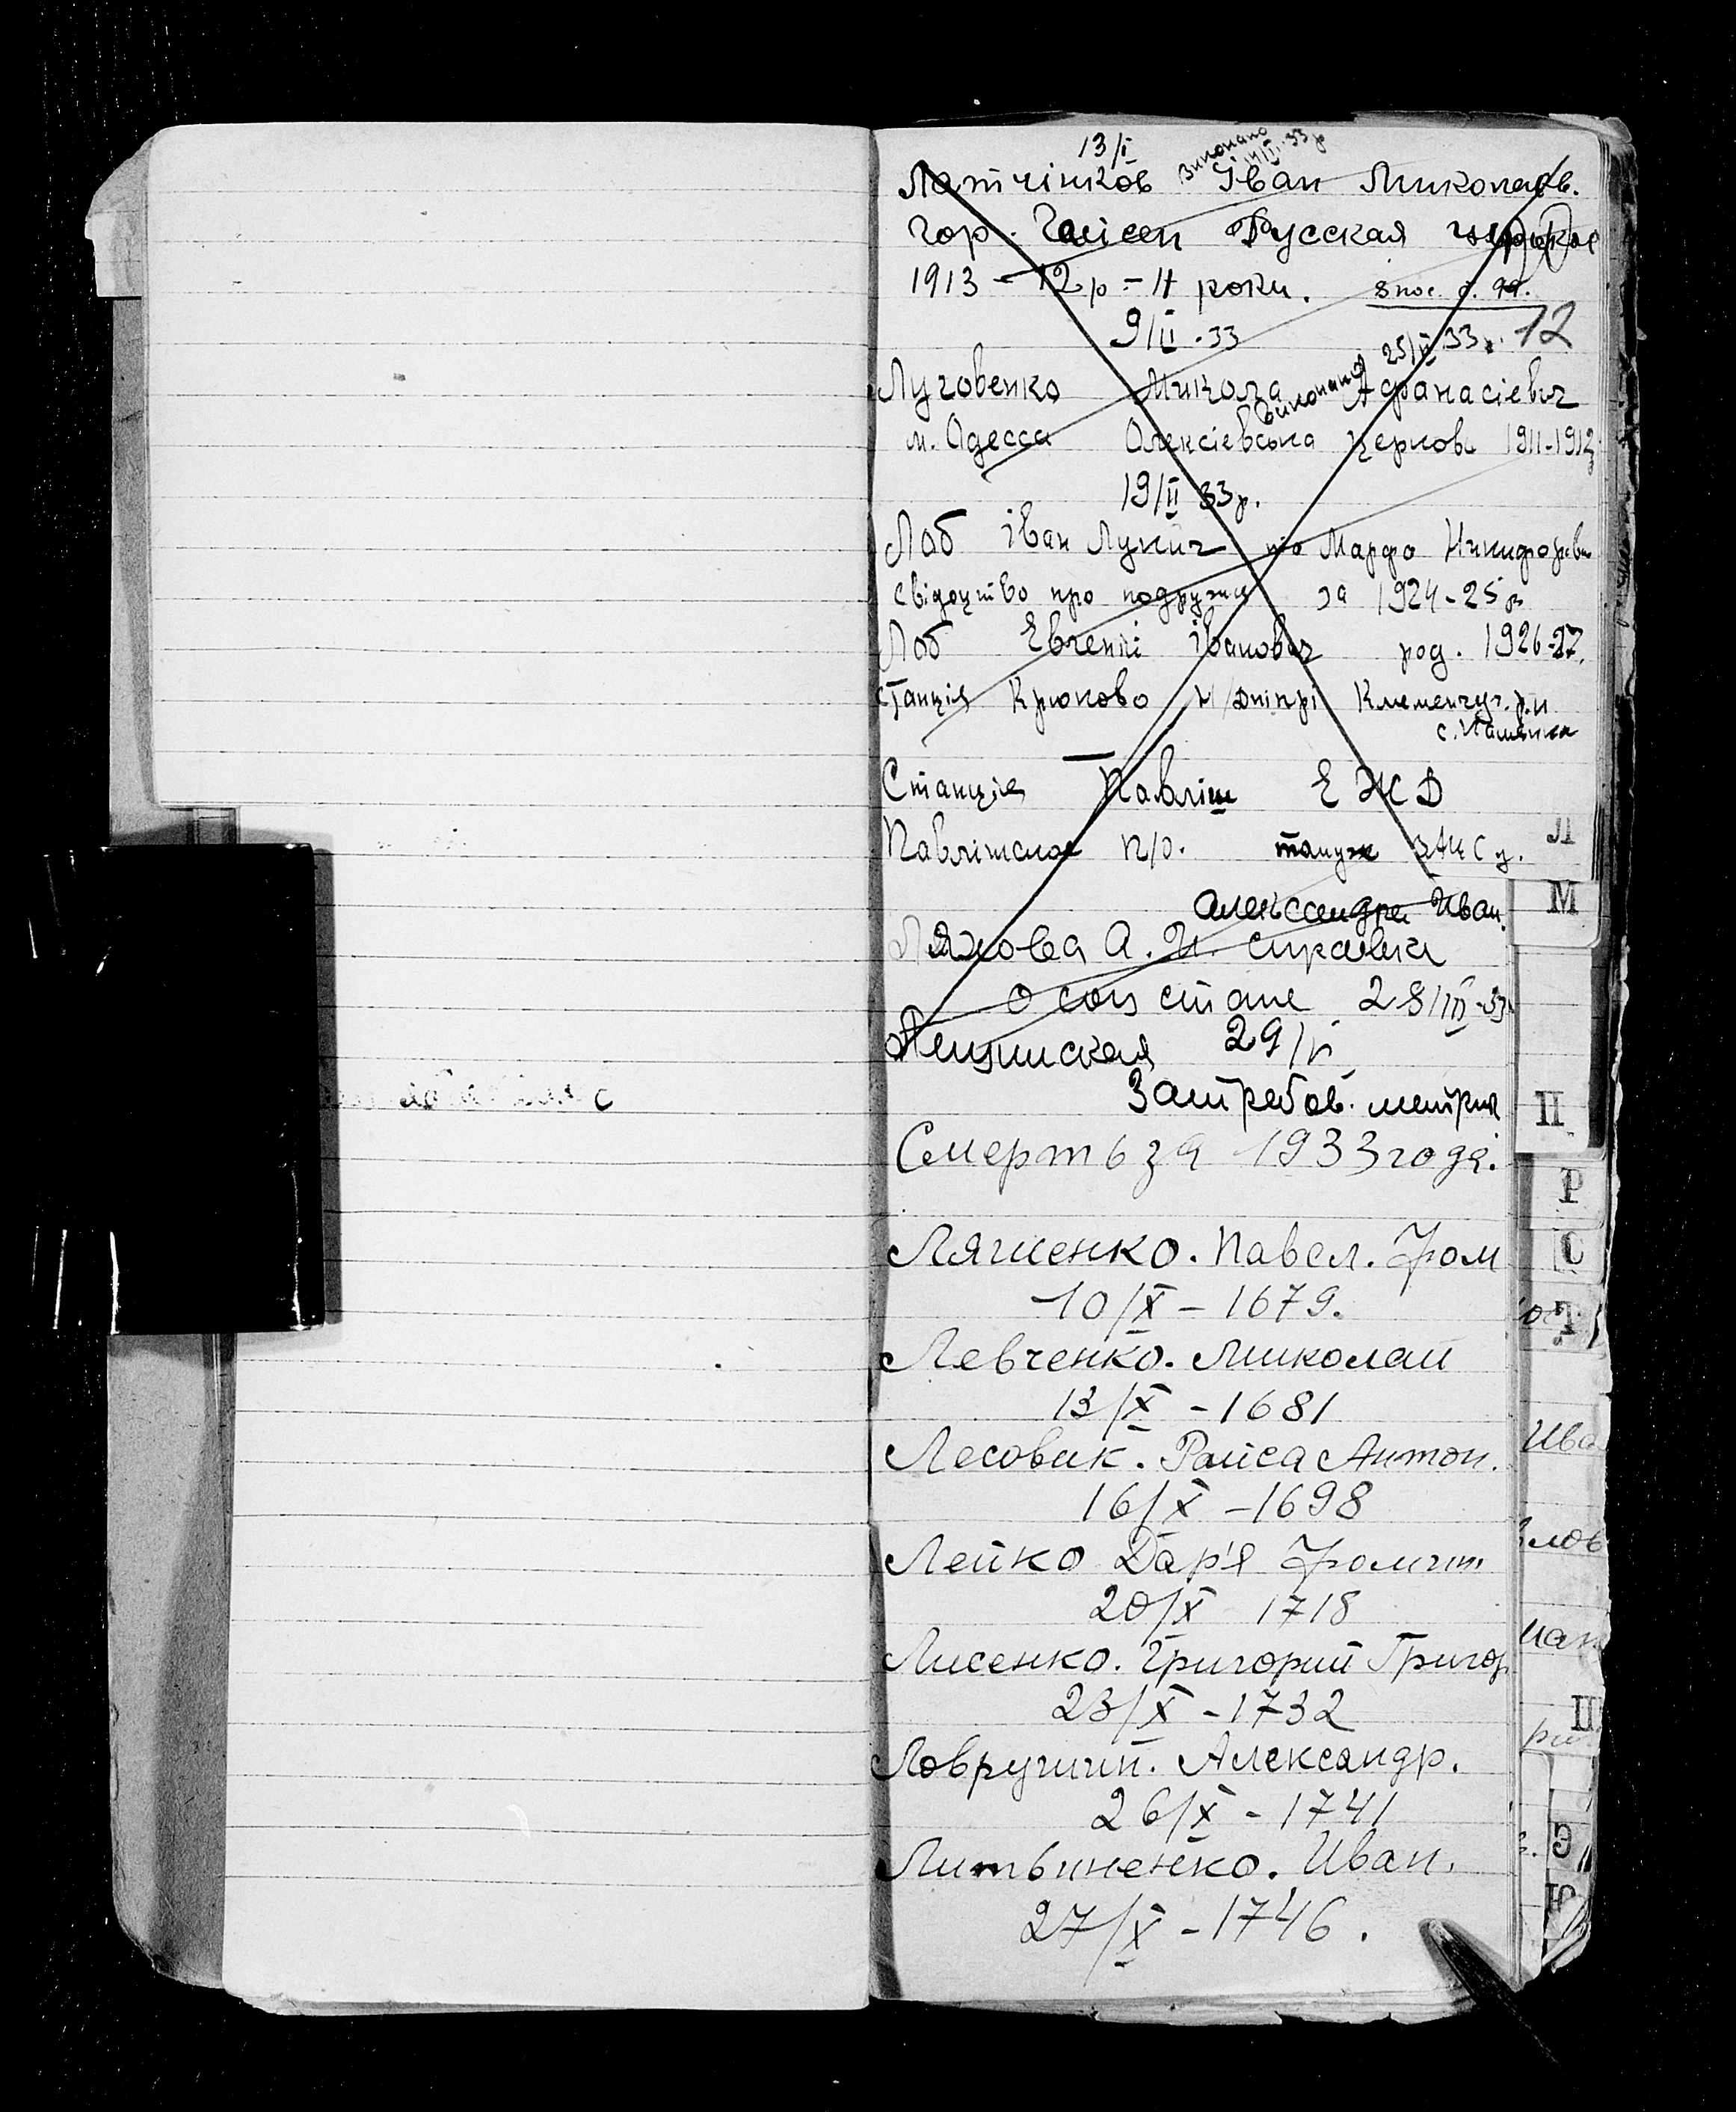 13/I Виконано 14/II.33р
Латчінков Іван Миколаєв.
гор. Гайсен Русская
1913 - 12р - 11 роки.
9/II.33 25/II 33р. 12
Луговенко Микола Виконано Афанасієвич
м. Одесса Олексієвська церковь 1911-1912
19/II 33р.
Лоб Іван Лукич та Марфа Никифоровн
свідоцтво про подружжя за 1924-25р
Лоб Евгеній Іванович род. 1926-27.
станція Крюково н/Дніпрі р.н.
Станция Павліш Е Ж Д
п/о. тануж ЗАГС у.
Александра Иван.
Ляхова А. И. справка
о сом стане 28/III-33
29/V
Затребов. метрия
Смерть за 1933 года.
Ляшенко. Павел. Тром
10/X - 1679.
Левченко. Миколай
13/X - 1681
Лесовик. Раиса Антон.
16/X - 1698
Лейко Дар'я
20/X 1718
Лисенко. Григорий Григор
23/X - 1732
Ловручин. Александр.
26/X - 1741
Литвиненко. Иван.
27/X - 1746.
Л
М
П
Р
С
Т
Ива
Э
Ю